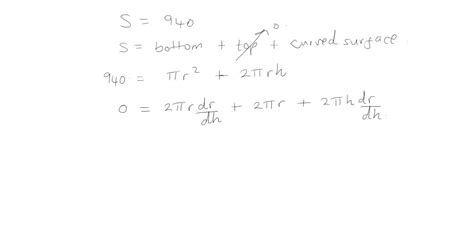 S = 940
S = bottom + top 0 + curved surface
940 = πr² + 2πrh
0 = 2πr dr/dh + 2πr + 2πh dr/dh